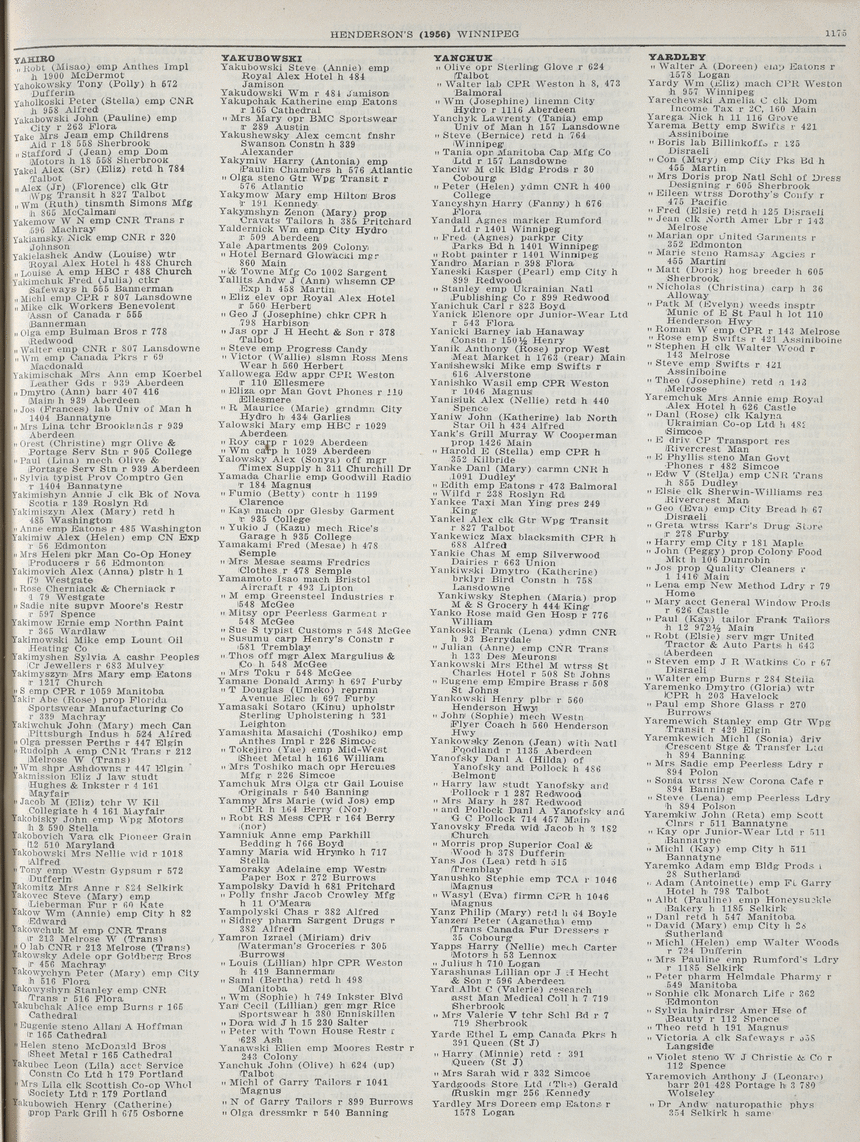 HENDERSON'S (1956) WINNIPEG
1175
YAHIRO
" Robt (Misao) emp Anthes Impl
h 1900 McDermot
Yahokowsky Tony (Polly) h 672
Dufferin
Yaholkoski Peter (Stella) emp CNR
h 958 Alfred
Yakabowski John (Pauline) emp
City r 263 Flora
Yake Mrs Jean emp Childrens
Aid r 18 558 Sherbrook
" Stafford J (Jean) emp Dom
Motors h 18 558 Sherbrook
Yakel Alex (Sr) (Eliz) retd h 784
Talbot
" Alex (Jr) (Florence) clk Gtr
Wpg Transit h 827 Talbot
" Wm (Ruth) tinsmth Simons Mfg
h 865 McCalman
Yakemow W N emp CNR Trans r
596 Machray
Yakiamsky Nick emp CNR r 320
Johnson
Yakielashek Andw (Louise) wtr
Royal Alex Hotel h 488 Church
" Louise A emp HBC r 488 Church
Yakimchuk Fred (Julia) ctkr
Safeways h 555 Bannerman
" Michl emp CPR r 807 Lansdowne
" Mike clk Workers Benevolent
Assn of Canada r 555
Bannerman
" Olga emp Bulman Bros r 778
Redwood
" Walter emp CNR r 807 Lansdowne
" Wm emp Canada Pkrs r 69
Macdonald
Yakimischak Mrs Ann emp Koerbel
Leather Gds r 939 Aberdeen
" Dmytro (Ann) barr 407 416
Main h 939 Aberdeen
" Jos (Frances) lab Univ of Man h
1404 Bannatyne
" Mrs Lina tchr Brooklands r 939
Aberdeen
" Orest (Christine) mgr Olive &
Portage Serv Stn r 905 College
" Paul (Lina) mech Olive &
Portage Serv Stn r 939 Aberdeen
" Sylvia typist Prov Comptro Gen
r 1404 Bannatyne
Yakimishyn Annie J clk Bk of Nova
Scotia r 139 Roslyn Rd
Yakimiszyn Alex (Mary) retd h
485 Washington
" Anne emp Eatons r 485 Washington
Yakimiw Alex (Helen) emp CN Exp
r 56 Edmonton
" Mrs Helen pkr Man Co-Op Honey
Producers r 56 Edmonton
Yakimovich Alex (Anna) plstr h 1
179 Westgate
" Rose Cherniack & Cherniack r
4 79 Westgate
" Sadie nite supvr Moore's Restr
r 597 Spence
Yakimow Ernie emp Northn Paint
r 365 Wardlaw
Yakimowski Mike emp Lount Oil
Heating Co
Yakimyshen Sylvia A cashr Peoples
Cr Jewellers r 683 Mulvey
Yakimyszyn Mrs Mary emp Eatons
r 1217 Church
" S emp CPR r 1059 Manitoba
Yakir Abe (Rose) prop Florida
Sportswear Manufacturing Co
r 339 Machray
Yakiwchuk John (Mary) mech Can
Pittsburgh Indus h 524 Alfred
" Olga presser Perths r 447 Elgin
" Rudolph A emp CNR Trans r 212
Melrose W (Trans)
" Wm shpr Ashdowns r 447 Elgin
Yakmission Eliz J law studt
Hughes & Inkster r 4 161
Mayfair
" Jacob M (Eliz) tchr W Kil
Collegiate h 4 161 Mayfair
Yakobisky John emp Wpg Motors
h 3 590 Stella
Yakobovich Vara clk Pioneer Grain
d2 510 Maryland
Yakobowski Mrs Nellie wid r 1018
Alfred
" Tony emp Westn Gypsum r 572
Dufferin
Yakomitz Mrs Anne r 824 Selkirk
Yakovec Steve (Mary) emp
Lieberman Fur r 60 Kate
Yakow Wm (Annie) emp City h 82
Edward
Yakowchuk M emp CNR Trans
r 213 Melrose W (Trans)
" O lab CNR r 213 Melrose (Trans)
Yakowsky Adele opr Goldberg Bros
r 456 Machray
Yakowychyn Peter (Mary) emp City
h 516 Flora
Yakowyshyn Stanley emp CNR
Trans r 516 Flora
Yakubchak Alice emp Burns r 165
Cathedral
" Eugenie steno Allan A Hoffman
r 165 Cathedral
" Helen steno McDonald Bros
Sheet Metal r 165 Cathedral
Yakubec Leon (Lila) acct Service
Constn Co Ltd h 179 Portland
" Mrs Lila clk Scottish Co-op Whol
Society Ltd r 179 Portland
Yakubowich Henry (Catherine)
prop Park Grill h 675 Osborne
YAKUBOWSKI
Yakubowski Steve (Annie) emp
Royal Alex Hotel h 484
Jamison
Yakudowski Wm r 484 Jamison
Yakupchak Katherine emp Eatons
r 165 Cathedral
" Mrs Mary opr BMC Sportswear
r 289 Austin
Yakushewsky Alex cement fnshr
Swanson Constn h 339
Alexander
Yakymiw Harry (Antonia) emp
Paulin Chambers h 576 Atlantic
" Olga steno Gtr Wpg Transit r
576 Atlantic
Yakymow Mary emp Hilton Bros
r 191 Kennedy
Yakymshyn Zenon (Mary) prop
Cravats Tailors h 385 Pritchard
Yaldernick Wm emp City Hydro
r 509 Aberdeen
Yale Apartments 209 Colony
" Hotel Bernard Glowacki mgr
860 Main
" & Towne Mfg Co 1002 Sargent
Yallits Andw J (Ann) whsemn CP
Exp h 458 Martin
" Eliz elev opr Royal Alex Hotel
r 560 Herbert
" Geo J (Josephine) chkr CPR h
798 Harbison
" Jas opr J H Hecht & Son r 378
Talbot
" Steve emp Progress Candy
" Victor (Wallie) slsmn Ross Mens
Wear h 560 Herbert
Yallowega Edw appr CPR Weston
r 110 Ellesmere
" Eliza opr Man Govt Phones r 110
Ellesmere
" R Maurice (Marie) grndmn City
Hydro h 434 Garlies
Yalowski Mary emp HBC r 1029
Aberdeen
" Roy carp r 1029 Aberdeen
" Wm carp h 1029 Aberdeen
Yalowsky Alex (Sonya) off mgr
Timex Supply h 311 Churchill Dr
Yamada Charlie emp Goodwill Radio
r 184 Magnus
" Fumio (Betty) contr h 1199
Clarence
" Kay mach opr Glesby Garment
r 935 College
" Yukio J (Kazu) mech Rice's
Garage h 935 College
Yamakami Fred (Mesae) h 478
Semple
" Mrs Mesae seams Fredrics
Clothes r 478 Semple
Yamamoto Isao mach Bristol
Aircraft r 493 Lipton
" M emp Greensteel Industries r
548 McGee
" Mitsy opr Peerless Garment r
548 McGee
" Sue S typist Customs r 548 McGee
" Susumu carp Henry's Constr r
581 Tremblay
" Thos off mgr Alex Margulius &
Co h 548 McGee
" Mrs Toku r 548 McGee
Yamane Donald Army h 697 Furby
" T Douglas (Umeko) reprmn
Avenue Elec h 697 Furby
Yamasaki Sotaro (Kinu) upholstr
Sterling Upholstering h 331
Leighton
Yamashita Masaichi (Toshiko) emp
Anthes Impl r 226 Simcoe
" Tokejiro (Yae) emp Mid-West
Sheet Metal h 1616 William
" Mrs Toshiko mach opr Hercules
Mfg r 226 Simcoe
Yamchuk Mrs Olga ctr Gail Louise
Originals r 540 Banning
Yammy Mrs Marie (wid Jos) emp
CPR h 164 Berry (Nor)
" Robt RS Mess CPR r 164 Berry
(nor)
Yamniuk Anne emp Parkhill
Bedding h 766 Boyd
Yamny Maria wid Hrynko h 717
Stella
Yamoraky Adelaine emp Westn
Paper Box r 272 Burrows
Yampolsky David h 681 Pritchard
" Polly fnshr Jacob Crowley Mfg
h 11 O'Meara
Yampolyski Chas r 382 Alfred
" Sidney pharm Sargent Drugs r
382 Alfred
Yamron Izrael (Miriam) driv
Waterman's Groceries r 305
Burrows
" Louis (Lillian) hlpr CPR Weston
h 419 Bannerman
" Saml (Bertha) retd h 498
Manitoba
" Wm (Sophie) h 749 Inkster Blvd
Yan Cecil (Lillian) gen mgr Rice
Sportswear h 380 Enniskillen
" Dora wid J h 15 230 Salter
" Peter with Town House Restr r
628 Ash
Yanawski Ellen emp Moores Restr r
243 Colony
Yanchuk John (Olive) h 624 (up)
Talbot
" Michl of Garry Tailors r 1041
Magnus
" N of Garry Tailors r 899 Burrows
" Olga dressmkr r 540 Banning
YANCHUK
" Olive opr Sterling Glove r 624
Talbot
" Walter lab CPR Weston h 8, 473
Balmoral
" Wm (Josephine) linemn City
Hydro r 1116 Aberdeen
Yanchyk Lawrenty (Tania) emp
Univ of Man h 157 Lansdowne
" Steve (Bernice) retd h 764
Winnipeg
" Tania opr Manitoba Cap Mfg Co
Ltd r 157 Lansdowne
Yanciw M clk Bldg Prods r 30
Cobourg
" Peter (Helen) ydmn CNR h 400
College
Yancyshyn Harry (Fanny) h 676
Flora
Yandall Agnes marker Rumford
Ltd r 1401 Winnipeg
" Fred (Agnes) parkpr City
Parks Bd h 1401 Winnipeg
" Robt painter r 1401 Winnipeg
Yandro Marian r 398 Flora
Yaneski Kasper (Pearl) emp City h
899 Redwood
" Stanley emp Ukrainian Natl
Publishing Co r 899 Redwood
Yanichuk Carl r 823 Boyd
Yanick Elenore opr Junior-Wear Ltd
r 543 Flora
Yanicki Barney lab Hanaway
Constn r 150½ Henry
Yanik Anthony (Rose) prop West
Meat Market h 1763 (rear) Main
Yanishewski Mike emp Swifts r
616 Alverstone
Yanishko Wasil emp CPR Weston
r 1046 Magnus
Yanisiuk Alex (Nellie) retd h 440
Spence
Yaniw John (Katherine) lab North
Star Oil h 434 Alfred
Yank's Grill Murray W Cooperman
prop 1426 Main
" Harold E (Stella) emp CPR h
352 Kilbride
Yanke Danl (Mary) carmn CNR h
1091 Dudley
" Edith emp Eatons r 473 Balmoral
" Wilfd r 238 Roslyn Rd
Yankee Taxi Man Ying pres 249
King
Yankel Alex clk Gtr Wpg Transit
r 827 Talbot
Yankewicz Max blacksmith CPR h
688 Alfred
Yankie Chas M emp Silverwood
Dairies r 663 Union
Yankiwski Dmytro (Katherine)
brklyr Bird Constn h 758
Lansdowne
Yankiwsky Stephen (Maria) prop
M & S Grocery h 444 King
Yanko Rose maid Gen Hosp r 776
William
Yankoski Frank (Lena) ydmn CNR
h 93 Berrydale
" Julian (Anne) emp CNR Trans
h 133 Des Meurons
Yankowski Mrs Ethel M wtrss St
Charles Hotel r 508 St Johns
" Eugene emp Empire Brass r 508
St Johns
Yankowski Henry plbr r 560
Henderson Hwy
" John (Sophie) mech Westn
Flyer Coach h 560 Henderson
Hwy
Yankowsky Zenon (Jean) with Natl
Foodland r 1135 Aberdeen
Yanofsky Danl A (Hilda) of
Yanofsky and Pollock h 486
Belmont
" Harry law studt Yanofsky and
Pollock r 1 287 Redwood
" Mrs Mary h 287 Redwood
" and Pollock Danl A Yanofsky and
G C Pollock 714 457 Main
Yanovsky Freda wid Jacob h 3 182
Church
" Morris prop Superior Coal &
Wood h 378 Dufferin
Yans Jos (Lea) retd h 515
Tremblay
Yanushko Stephie emp TCA r 1046
Magnus
" Wasyl (Eva) firmn CPR h 1046
Magnus
Yanz Philip (Mary) retd h 64 Boyle
Yanzen Peter (Aganetha) emp
Trans Canada Fur Dressers r
35 Cobourg
Yapps Harry (Nellie) mech Carter
Motors h 58 Lennox
" Julius h 710 Logan
Yarashunas Lillian opr J H Hecht
& Son r 596 Aberdeen
Yard Albt C (Valerie) research
asst Man Medical Coll h 7 719
Sherbrook
" Mrs Valerie V tchr Schl Bd r 7
719 Sherbrook
Yarde Ethel L emp Canada Pkrs h
391 Queen (St J)
" Harry (Minnie) retd r 391
Queen (St J)
" Mrs Sarah wid r 332 Simcoe
Yardgoods Store Ltd (The) Gerald
Ruskin mgr 256 Kennedy
Yardley Mrs Doreen emp Eatons r
1578 Logan
YARDLEY
" Walter A (Doreen) emp Eatons r
1578 Logan
Yardy Wm (Eliz) mach CPR Weston
h 957 Winnipeg
Yarechewski Amelia C clk Dom
Income Tax r 2C, 160 Main
Yarega Nick h 11 116 Grove
Yarema Betty emp Swifts r 421
Assiniboine
" Boris lab Billinkoffs r 125
Disraeli
" Con (Mary) emp City Pks Bd h
455 Martin
" Mrs Doris prop Natl Schl of Dress
Designing r 605 Sherbrook
" Eileen wtrss Dorothy's Confy r
475 Pacific
" Fred (Elsie) retd h 125 Disraeli
" Jean clk North Amer Lbr r 143
Melrose
" Marian opr United Garments r
352 Edmonton
" Marie steno Ramsay Agcies r
455 Martin
" Matt (Doris) hog breeder h 605
Sherbrook
" Nicholas (Christina) carp h 36
Alloway
" Patk M (Evelyn) weeds insptr
Munic of E St Paul h lot 110
Henderson Hwy
" Roman W emp CPR r 143 Melrose
" Rose emp Swifts r 421 Assiniboine
" Stephen H clk Walter Wood r
143 Melrose
" Steve emp Swifts r 421
Assiniboine
" Theo (Josephine) retd h 143
Melrose
Yaremchuk Mrs Annie emp Royal
Alex Hotel h 626 Castle
" Danl (Rose) clk Kalyna
Ukrainian Co-op Ltd h 482
Simcoe
" E driv CP Transport res
Rivercrest Man
" E Phyllis steno Man Govt
Phones r 482 Simcoe
" Edw V (Stella) emp CNR Trans
h 855 Dudley
" Elsie clk Sherwin-Williams res
Rivercrest Man
" Geo (Eva) emp City Bread h 67
Disraeli
" Greta wtrss Karr's Drug Store
r 278 Furby
" Harry emp City r 181 Maple
" John (Peggy) prop Colony Food
Mkt h 106 Dunrobin
" Jos prop Quality Cleaners r
1 1416 Main
" Lena emp New Method Ldry r 79
Home
" Mary acct General Window Prods
r 626 Castle
" Paul (Kay) tailor Frank Tailors
h 12 972½ Main
" Robt (Elsie) serv mgr United
Tractor & Auto Parts h 643
Aberdeen
" Steven emp J R Watkins Co r 67
Disraeli
" Walter emp Burns r 284 Stella
Yaremenko Dmytro (Gloria) wtr
CPR h 203 Havelock
" Paul emp Shore Glass r 270
Burrows
Yaremewich Stanley emp Gtr Wpg
Transit r 429 Elgin
Yaremkewich Michl (Sonia) driv
Crescent Stge & Transfer Ltd
h 894 Banning
" Mrs Sadie emp Peerless Ldry r
894 Polson
" Sonia wtrss New Corona Cafe r
894 Banning
" Steve (Lena) emp Peerless Ldry
h 894 Polson
Yaremkiw John (Reta) emp Scott
Clnrs r 511 Bannatyne
" Kay opr Junior-Wear Ltd r 511
Bannatyne
" Michl (Kay) emp City h 511
Bannatyne
Yaremko Adam emp Bldg Prods r
28 Sutherland
" Adam (Antoinette) emp Ft Garry
Hotel h 798 Talbot
" Albt (Pauline) emp Honeysuckle
Bakery h 1185 Selkirk
" Danl retd h 547 Manitoba
" David (Mary) emp City h 28
Sutherland
" Michl (Helen) emp Walter Woods
r 724 Dufferin
" Mrs Pauline emp Rumford's Ldry
r 1185 Selkirk
" Peter pharm Helmdale Pharmy r
549 Manitoba
" Sophie clk Monarch Life r 362
Edmonton
" Sylvia hairdrsr Amer Hse of
Beauty r 112 Spence
" Theo retd h 191 Magnus
" Victoria A clk Safeways r 358
Langside
" Violet steno W J Christie & Co r
112 Spence
Yaremovich Anthony J (Leonare)
barr 201 428 Portage h 3 789
Wolseley
" Dr Andw naturopathic phys
354 Selkirk h same